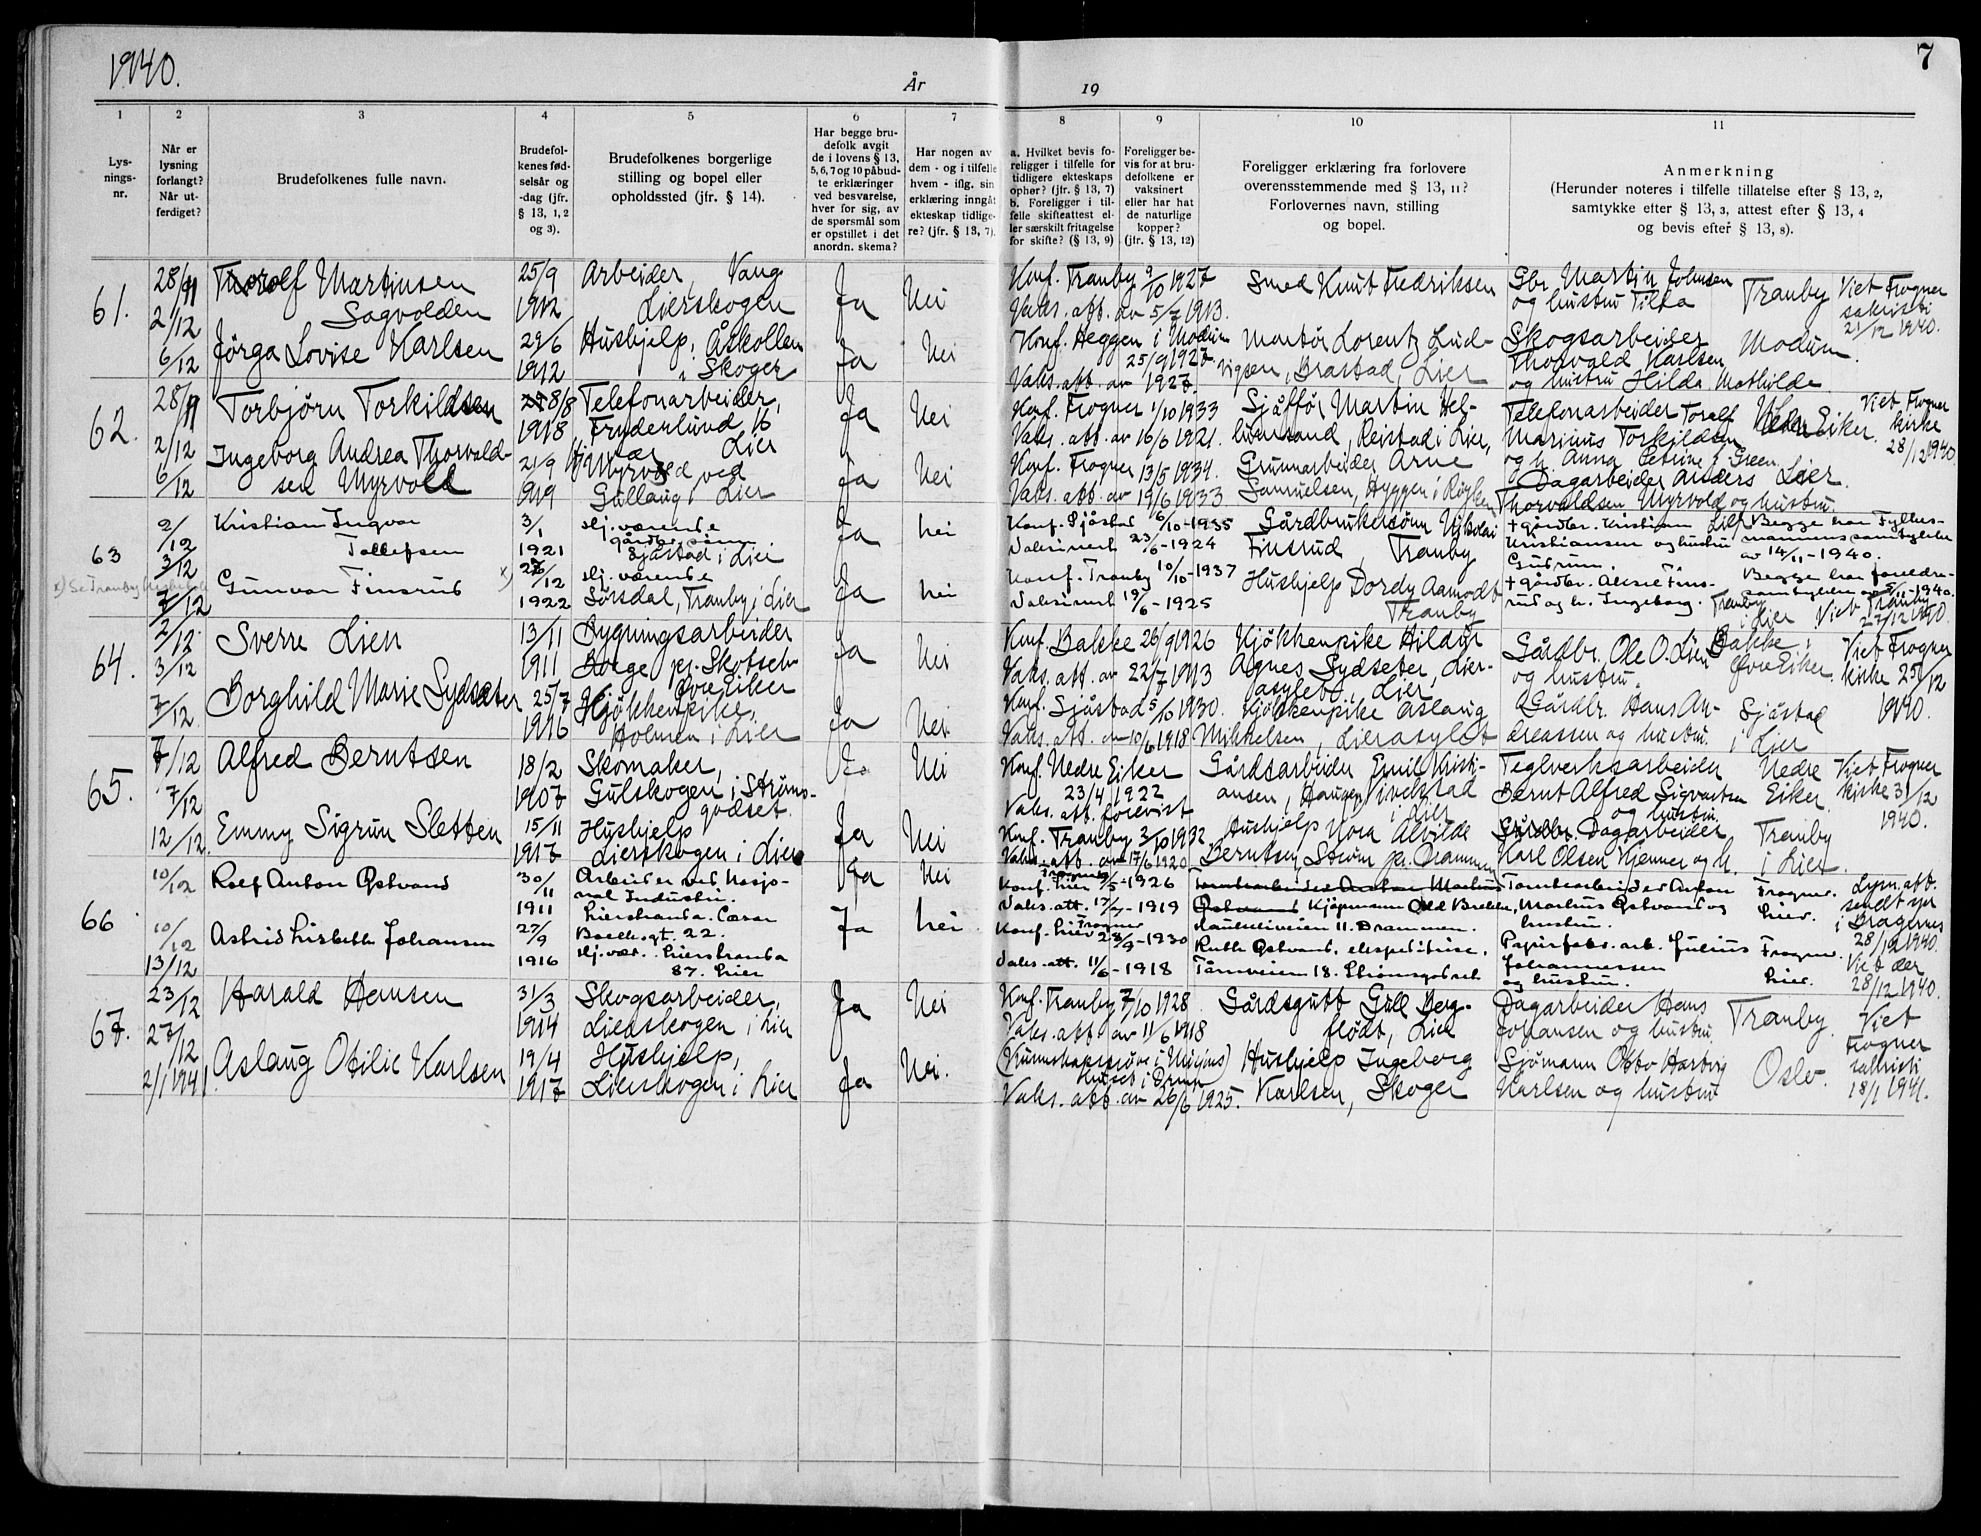 1940.
År
19
7
1
2
3
4
5
6
7
8
9
10
11
Lys-
nings-
nr.
Når er
lysning
forlangt?
Når ut-
ferdiget?
Brudefolkenes fulle navn.
Brudefol-
kenes fød-
selsår og
-dag (jfr.
§ 13, 1, 2
og 3).
Brudefolkenes borgerlige
stilling og bopel eller
opholdssted (jfr. § 14).
Har begge bru-
defolk avgit
de i lovens § 13,
5, 6, 7 og 10 påbud-
te erklæringer
ved besvarelse,
hver for sig, av
de spørsmål som
er opstillet i det
anordn. skema?
Har nogen av
dem - og i tilfelle
hvem - iflg. sin
erklæring inngåt
ekteskap tidlige-
re? (jfr. § 13, 7).
a. Hvilket bevis fo-
religger i tilfelle for
tidligere ekteskaps
ophør? (jfr. § 13, 7)
b. Foreligger i til-
felle skifteattest el-
ler særskilt fritagelse
for skifte? (§ 13, 9)
Foreligger be-
vis for at bru-
defolkene er
vaksinert
eller har hat
de naturlige
kopper?
(jfr. § 13, 12)
Foreligger erklæring fra forlovere
overensstemmende med § 13, 11?
Forlovernes navn, stilling
og bopel.
Anmerkning
(Herunder noteres i tilfelle tillatelse efter § 13, 2,
samtykke efter § 13, 3, attest efter § 13, 4
og bevis efter § 13, 8).
61.
28/11
2/12
6/12
Thorolf Martinsen
Sagvolden
25/9
1912
Arbeider, Vang
Lierskogen
Ja
Nei
Konf. Tranby 9/10 1927
Vaks. att. av 5/7 1913.
Smed Knut Fredriksen
Gbr. Martin Johnsen
og hustru Tilla
Tranby
Viet Frogner
sakristi
21/12 1940.
Jørga Lovise Karlsen
29/6
1912
Hushjelp, Åskollen
i Skoger
Ja
Nei
Konf. Heggen i Modum
25/9 1927.
Vaks. att. av 1927.
Lorentz Lud-
vigsen, Brastad, Lier
Skogsarbeider
Thorvald Karlsen
og hustru Hilda Mathilde
Modum.
62.
28/11
2/12
6/12
Torbjørn Torkildsen
28/8
1918
Telefonarbeider,
Fruderlund, 16
Lier
Ja
Nei
Konf. Frogner 1/10 1933
Vaks. att. av 16/6 1921.
Sjåffør Martin Hel-
, Reistad i Lier,
Telefonarbeider Toralf
Marinus Torkildsen
og h. Anna Petrine f. Green
Nedre Eiker.
Viet Frogner
kirke
28/12 1940.
Ingeborg Andrea Thorvald-
sen Myrvold
21/9
1919
Myrvold ved
Gullaug i Lier
Ja
Nei
Konf. Frogner 13/5 1934.
Vaks. att. av 19/6 1933
Grunnarbeider Arne
Samuelsen, Hyggen i Røyken
Dagarbeider Anders
Thorvaldsen Myrvold og hustru.
Lier
63
2/12
3/12
7/12
x) Se Tranby
Kristian Ingvar
Tollefsen
3/1
1921
Hj. værende
gårdbr. sønn
Sjåstad i Lier
Ja
Nei
Konf. Sjåstad 6/10-1935
Vaksinert 23/6-1924
Gårdbrukersønn Nikolai
Finsrud Tranby
+ gårdbr. Kristian
Kristiansen og hustru
Gudrun.
Lier
Begge har Fylkes-
mannens samtykke
av 14/11-1940.
Gunvor Finsrud
x)
26/12
1922
Hj. værende
Sørsdal, Tranby i Lier
Ja
Nei
Konf. Tranby 10/10-1937
Vaksinert 19/6-1925
Hushjelp Dordy Aamodt
Tranby
+ gårdbr. Aksel Fins-
rud og h. Ingeborg.
Tranby
i Lier
Begge har foreldre-
samtykke av 5/11-1940.
Viet Tranby
27/12 1940.
64.
2/12
3/12
7/12
Sverre Lien
13/11
1911
Bygningsarbeider
Borge pr. Skotselv
Øvre Eiker
Ja
Nei
Konf. Bakke 26/9 1926
Vaks. att. av 22/7 1913
Kjøkkenpike Hildur
Agnes Sydseter, Lier-
asylet, Lier
Gårdbr. Ole O. Lien
og hustru.
Bakke i
Øvre Eiker.
Viet Frogner
kirke 25/12
1940.
Borghild Marie Sydsæter
25/7
1916
Kjøkkenpike,
Holmen i Lier
Ja
Nei
Konf. Sjåstad 5/10 1930.
Vaks. att. av 10/6 1918
Kjøkkenpike Aslaug
Mikkelsen, Lierasylet
Gårdbr. Hans An-
dreassen og hustru.
Sjåstad
i Lier
65.
7/12
7/12
12/12.
Alfred Berntsen
18/2
1907
Skomaker,
Gulskogen i Strøms-
godset.
Ja
Nei
Konf. Nedre Eiker
23/4 1922
Vaks. att. forevist
Gårdsarbeider Emil Kristi-
ansen, Haugen
i Lier
Teglverksarbeider
Bernt Alfred Sigvartsen
og hustru.
Nedre
Eiker.
Viet Frogner
kirke 31/12
1940.
Emmy Sigrun Sletten
15/11
1917
Hushjelp
Lierskogen i Lier
Ja
Nei
Konf. Tranby 3/10 1932
Vaks. att. av 17/6 1920
Hushjelp Nora Alvilde
Berntsen, Strøm pr. Drammen
Gårdbr. Dagarbeider
Karl Olsen Kjenner og h.
Tranby
i Lier
66
10/12
10/12
13/12
Rolf Anton Østvand
30/11
1911
Arbeider ved Nasjo-
nal Industri.
Lierstranda.
Ja
Nei
Frogner
Konf. Lier 9/5-1926
Vaks. att. 17/7-1919
Tomtearbeider Anton Marius
Østvand Kjøpmann Odd Brekke,
Haukelieveien 11. Drammen.
Tomtearbeider Anton
Marius Østvand og
hustru.
Frogner.
Lier.
Lysn. att.
sendt spr
i Bragernes
28/12 1940.
Viet der
28/12 1940.
Astrid Lisbeth Johansen
27/9
1916
Hj. vær. Lierstranda
87. Lier
Ja
Nei
Frogner
Konf. Lier 28/9-1930
Vaks. att. 11/6-1918
Ruth Østvand, ekspeditrise,
Tårnveien 18. Strømsgodset
Papirfabr. arb. Julius
Johannessen
og hustru.
Frogner.
Lier.
67.
23/12
27/12
2/1 1941.
Harald Hansen
31/3
1914
Skogsarbeider,
Lierskogen i Lier
Ja
Nei
Konf. Tranby 7/10 1928
Vaks. att. av 11/6 1918
Gårdsgutt Gull Berg-
flødt, Lier
Dagarbeider Hans
Johansen og hustru
Tranby.
Viet
Frogner
sakristi
18/1 1941.
Aslaug Otilie Karlsen
19/4
1917
Hushjelp,
Lierskogen i Lier
Ja
Nei.
(Kunnskapsprøve i Misjons)
huset i Drmn
Vaks. att. av 26/6 1925.
Hushjelp Ingeborg
Karlsen, Skoger
Sjømann Otto Hartvig
Karlsen og hustru
Oslo.